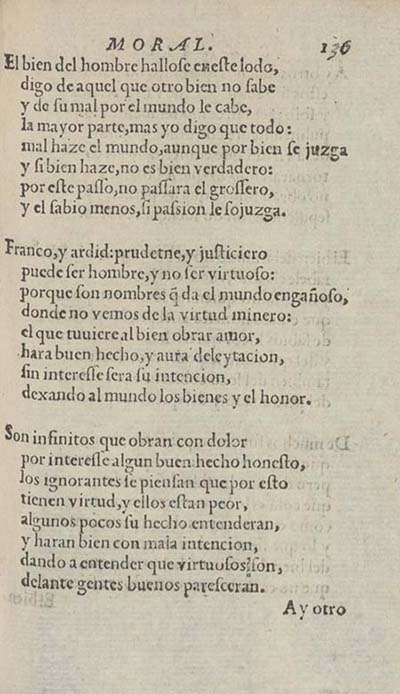 MORAL. 136
El bien del hombre hallose eneste lodo,
digo de aquel que otro bien no sabe
y de su mal por el mundo le cabe,
la mayor parte, mas yo digo que todo:
mal haze el mundo, aunque por bien se juzga
y si bien haze, no es bien verdadero:
por este passo, no passara el grossero,
y el sabio menos, si passion le sojuzga.
Franco, y ardid: prudetne, y justiciero
puede ser hombre, y no ser virtuoso:
porque son nombres q̃ da el mundo engañoso,
donde no vemos de la virtud minero:
el que tuuiere al bien obrar amor,
hara buen hecho, y aura deleytacion,
sin interesse sera su intencion,
dexando al mundo los bienes y el honor.
Son infinitos que obran con dolor
por interesse algun buen hecho honesto,
los ignorantes se piensan que por esto
tienen virtud, y ellos estan peor,
algunos pocos su hecho entenderan,
y haran bien con mala intencion,
dando a entender que virtuosos son,
delante gentes buenos paresceran.
Ay otro